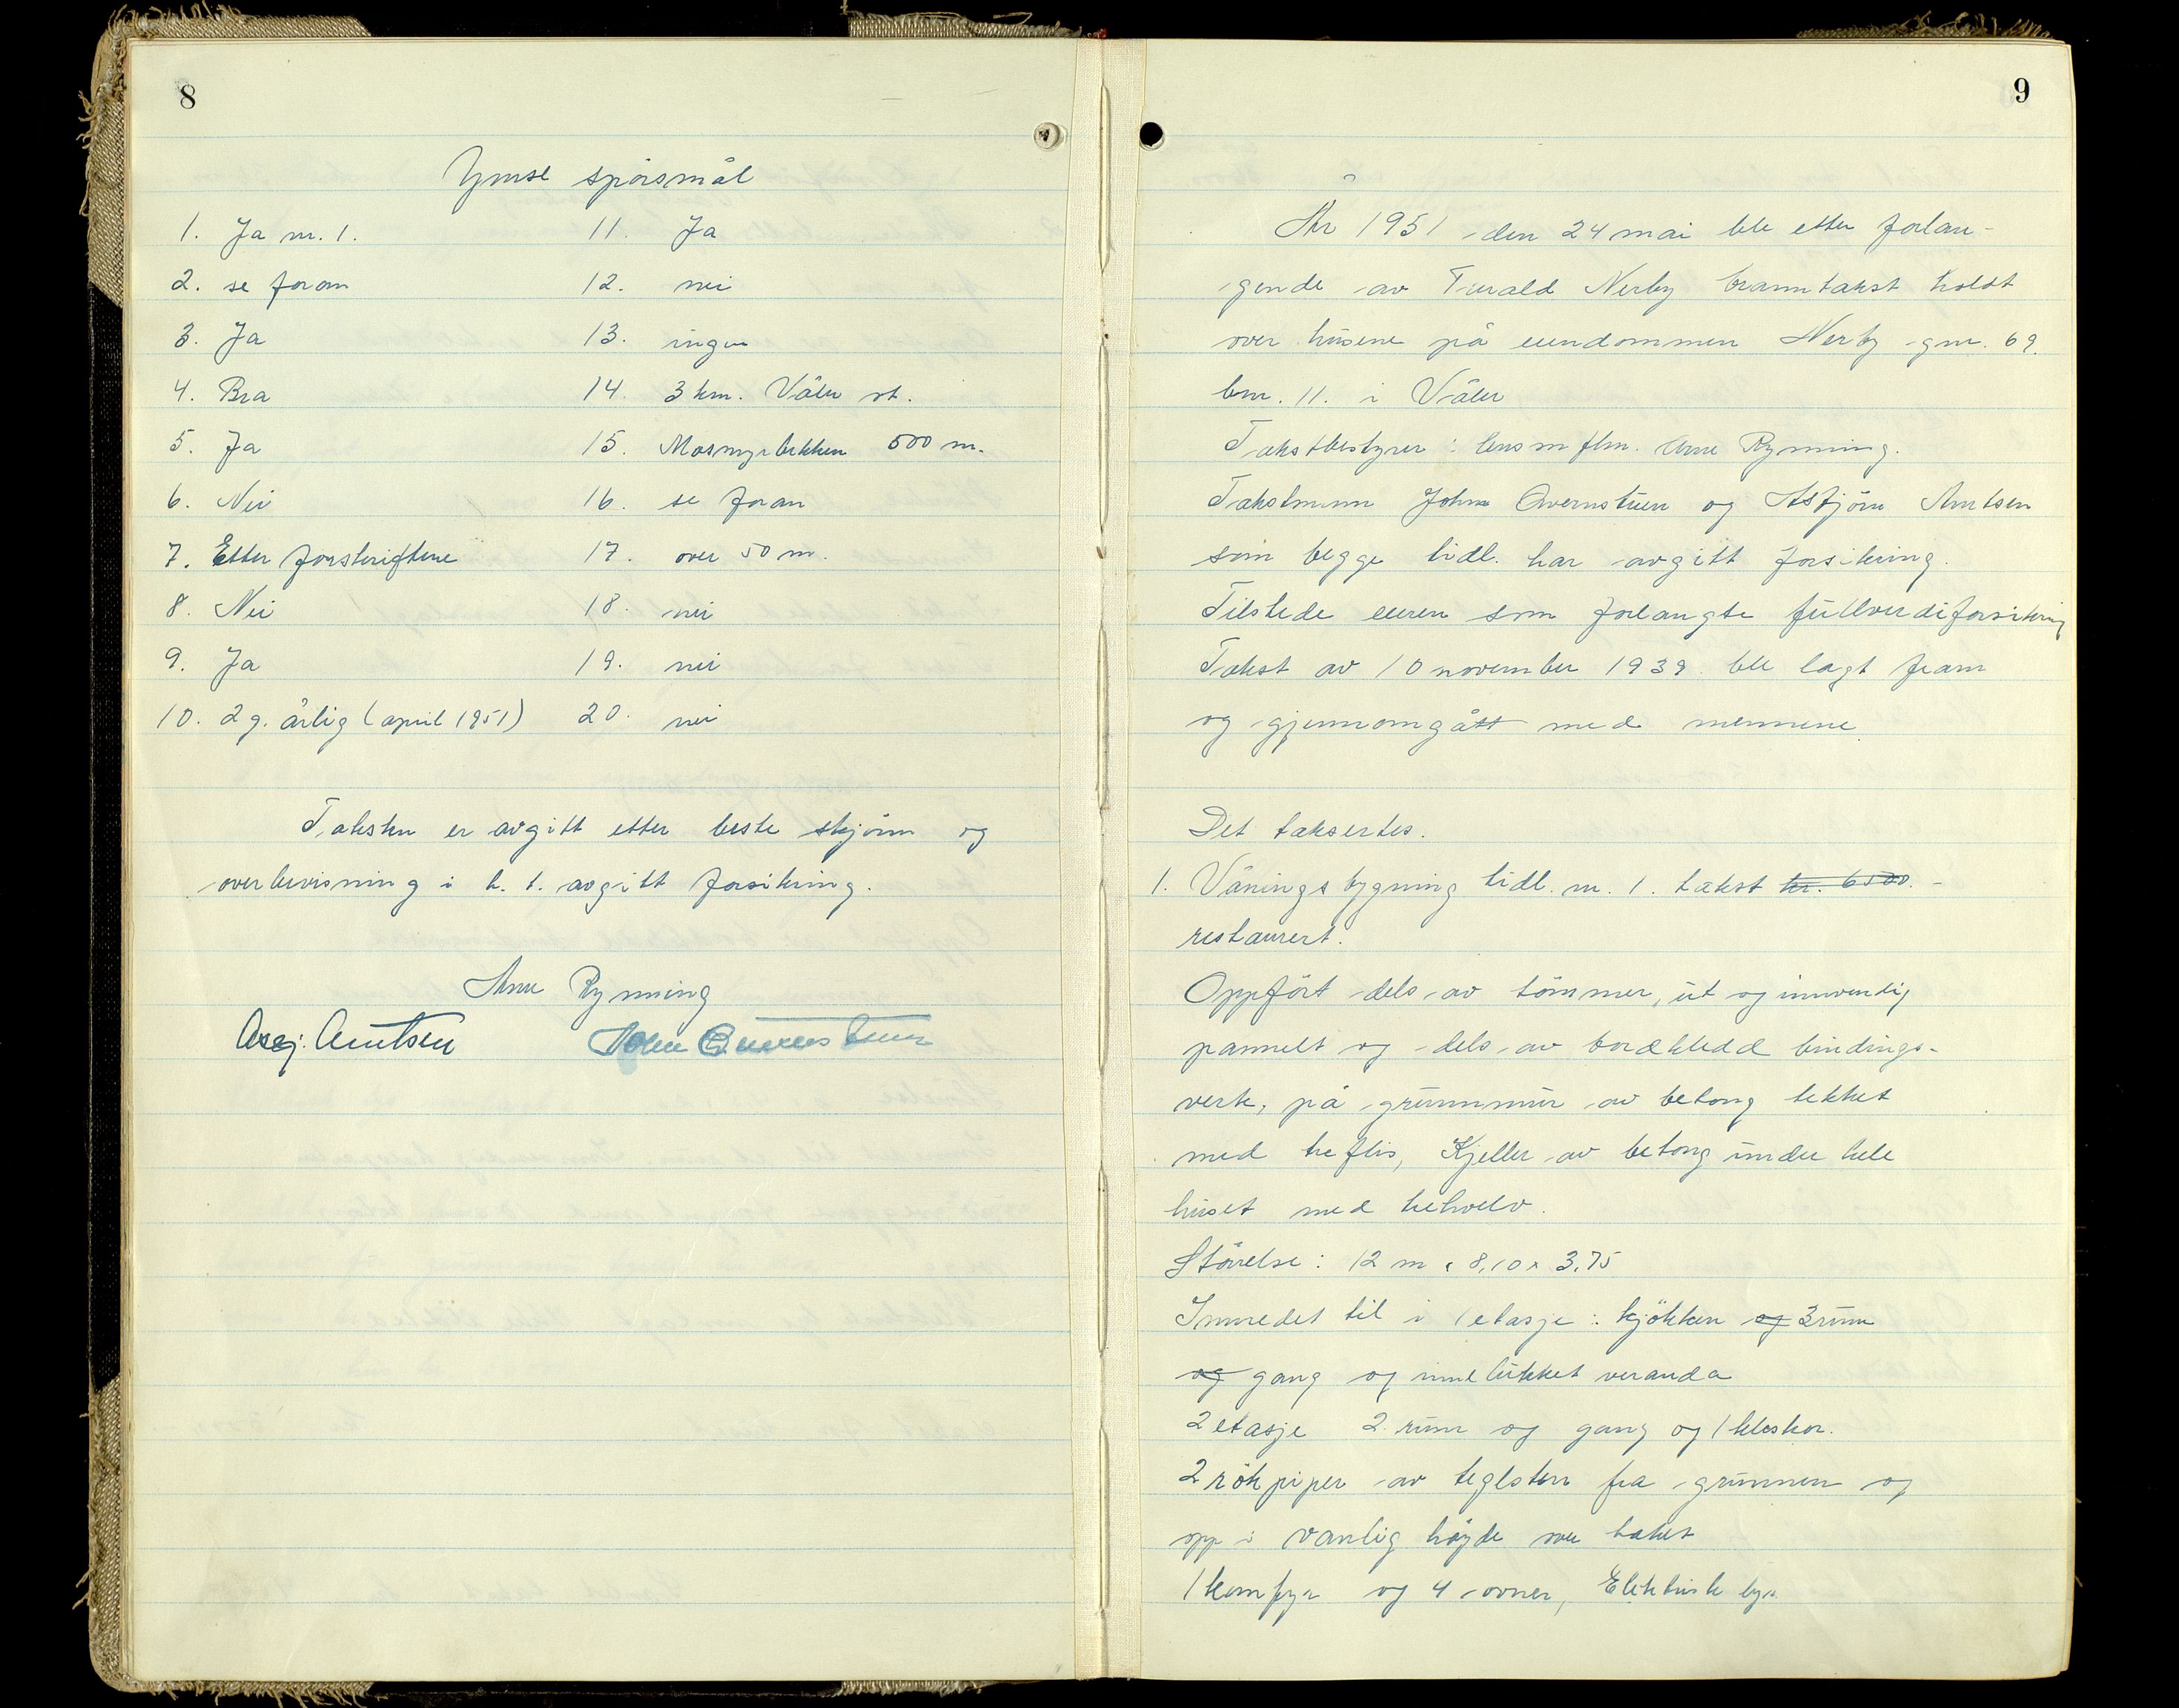 8
Ymse spörsmål
1. Ja nr. 1.
2. se foran
3. Ja
4. Bra
5. Ja
6. Nei
7. Etter forskriftene
8. Nei
9. Ja
10. 2 g. årlig (april 1951)
11. Ja
12. nei
13. ingen
14. 3 km. Våler st.
15. Mosmyrbekken 500 m.
16. se foran
17. over 50 m.
18. nei
19. nei
20. nei
Taksten er avgitt etter beste skjönn og
overbevisning i h. t. avgitt forsikring.
Arne Rynning
Asbj. Arntsen John Qvernstuen
9
År 1951 den 24 mai ble etter forlan-
gende av Torald Nerby branntakst holdt
over husene på eiendommen Nerby gnr. 69.
bnr. 11. i Våler
Takstbestyrer: lensm flm. Arne Rynning.
Takstmenn John Qvernstuen og Asbjörn Arntsen
som begge tidl. har avgitt forsikring.
Tilstede eieren som forlangte fullverdiforsikring
Takst av 10 november 1939 ble lagt fram
og gjennomgått med mennene.
Det taksertes.
1. Våningsbygning tidl. nr. 1. takst kr. 6500.-
restaurert.
Oppfört dels av tömmer, ut og innvendig
pannelt og dels av bordkledd bindings-
verk, på grunnmur av betong tekket
med treflis, Kjeller av betong under hele
huset med trehvelv.
Störrelse: 12 m x 8,10 x 3,75
Innredet til i 1 etasje: kjökken og 3 rum
og gang og innelukket veranda
2 etasje 2 rum og gang og 1 kleskot.
2 rökpiper av teglsten fra grunnen og
opp i vanlig höyde over taket
1 komfyr og 4 ovner, Elektrisk lys.